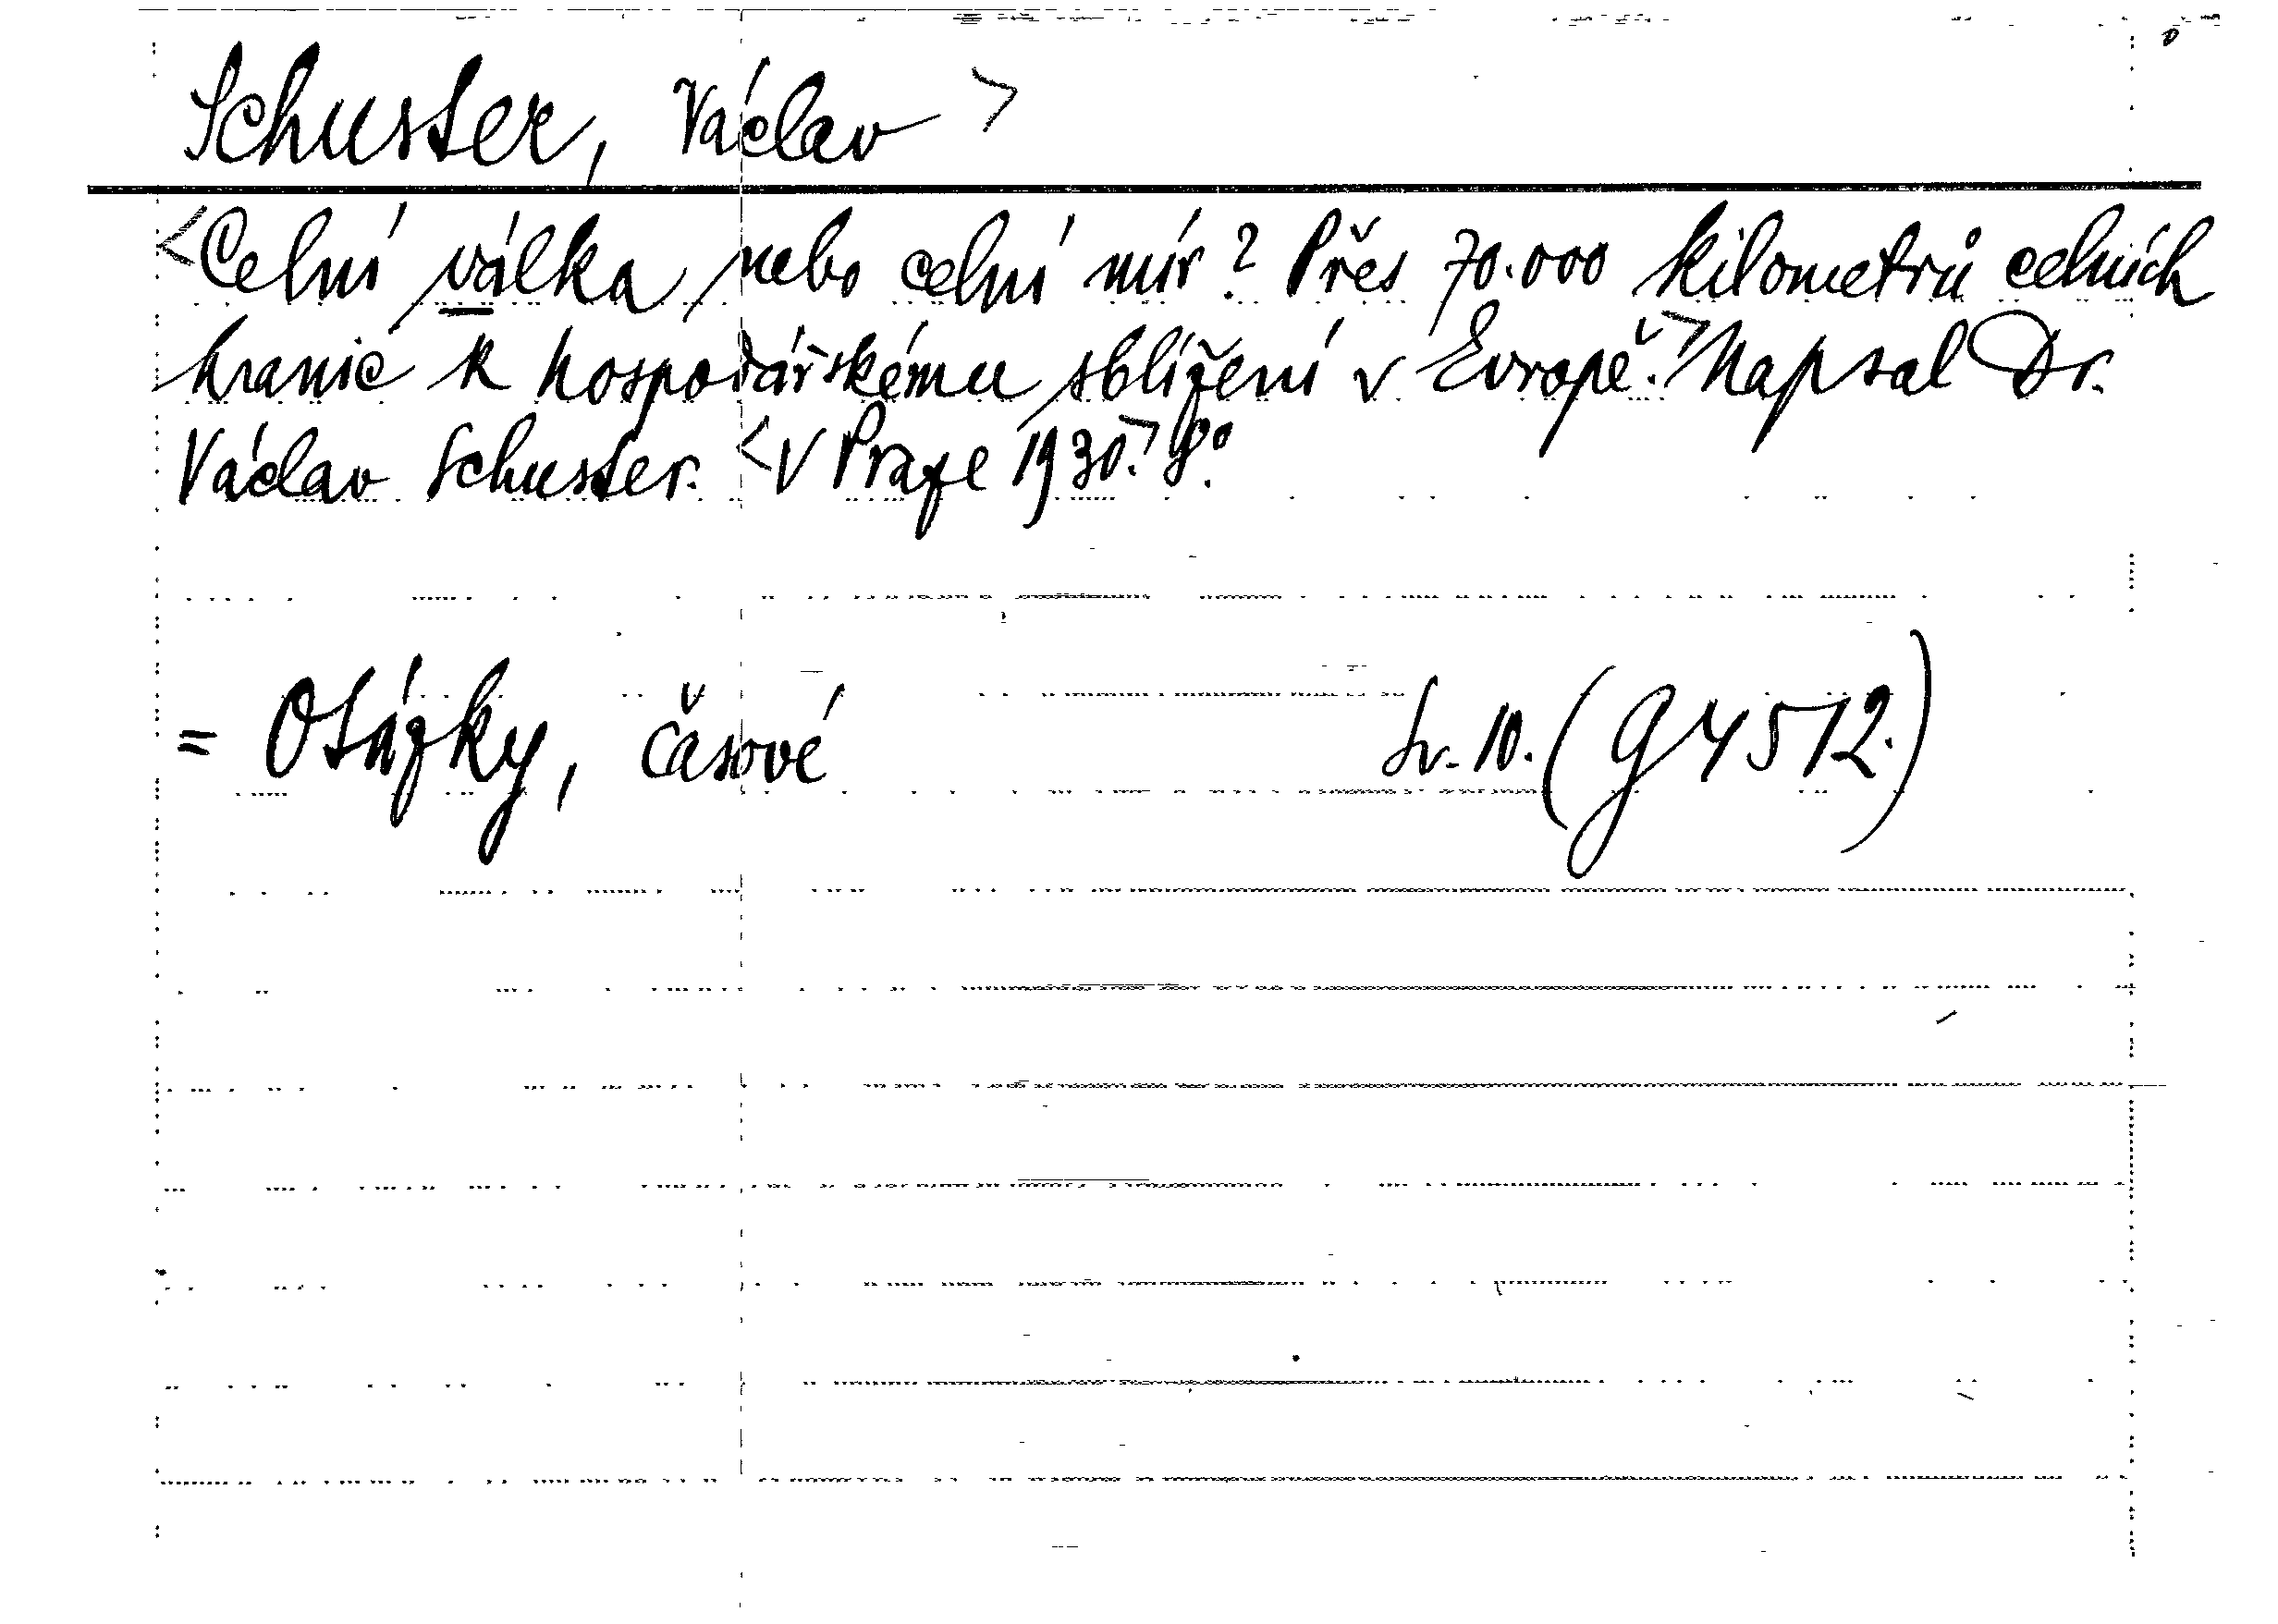 Schuster, Václav >
<Celní válka, nebo celní mír? Přes 70.000 kilometrů celních
hranic k hospodářskému sblížení v Evropě.> Napsal Dr.
Václav Schuster. <V Praze 1930.> 8°.
= Otázky, časové Sv. 10. (G 4572.)